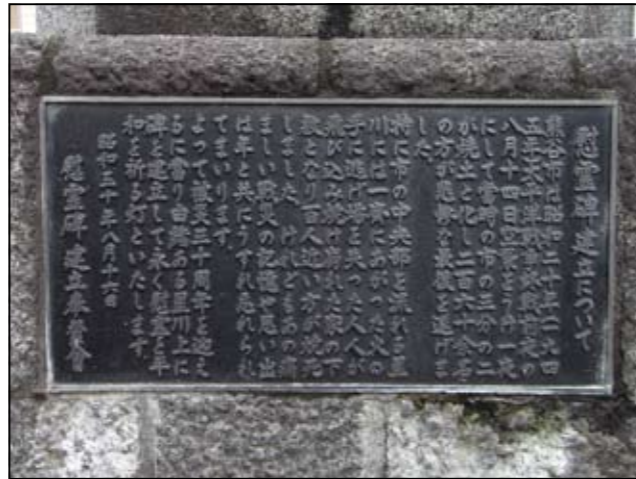 慰霊碑 建立について
熊谷市は昭和二十年一九四
五年太平洋戦争終戦前夜の
八月十四日空襲をうけ一夜
にして當時の市の三分の二
が焼土と化し二百六十余名
の方が悲惨な最後を遂げま
した。
特に市の中央部を流れる星
川には一斉にあがった火の
手に逃げ場を失った人人が
飛び込み焼け崩れた家の下
敷となり百人近い方が焼死
しました。けれどもあの痛
ましい戦災の記憶や思い出
は年と共にうすれ忘れられ
てまいります。
よって災三十周年を迎え
るに當り由緒ある星川上に
碑を建立して永く慰霊と平
和を祈る灯といたします。
昭和五十年八月十六日
慰霊碑 建立奉賛會